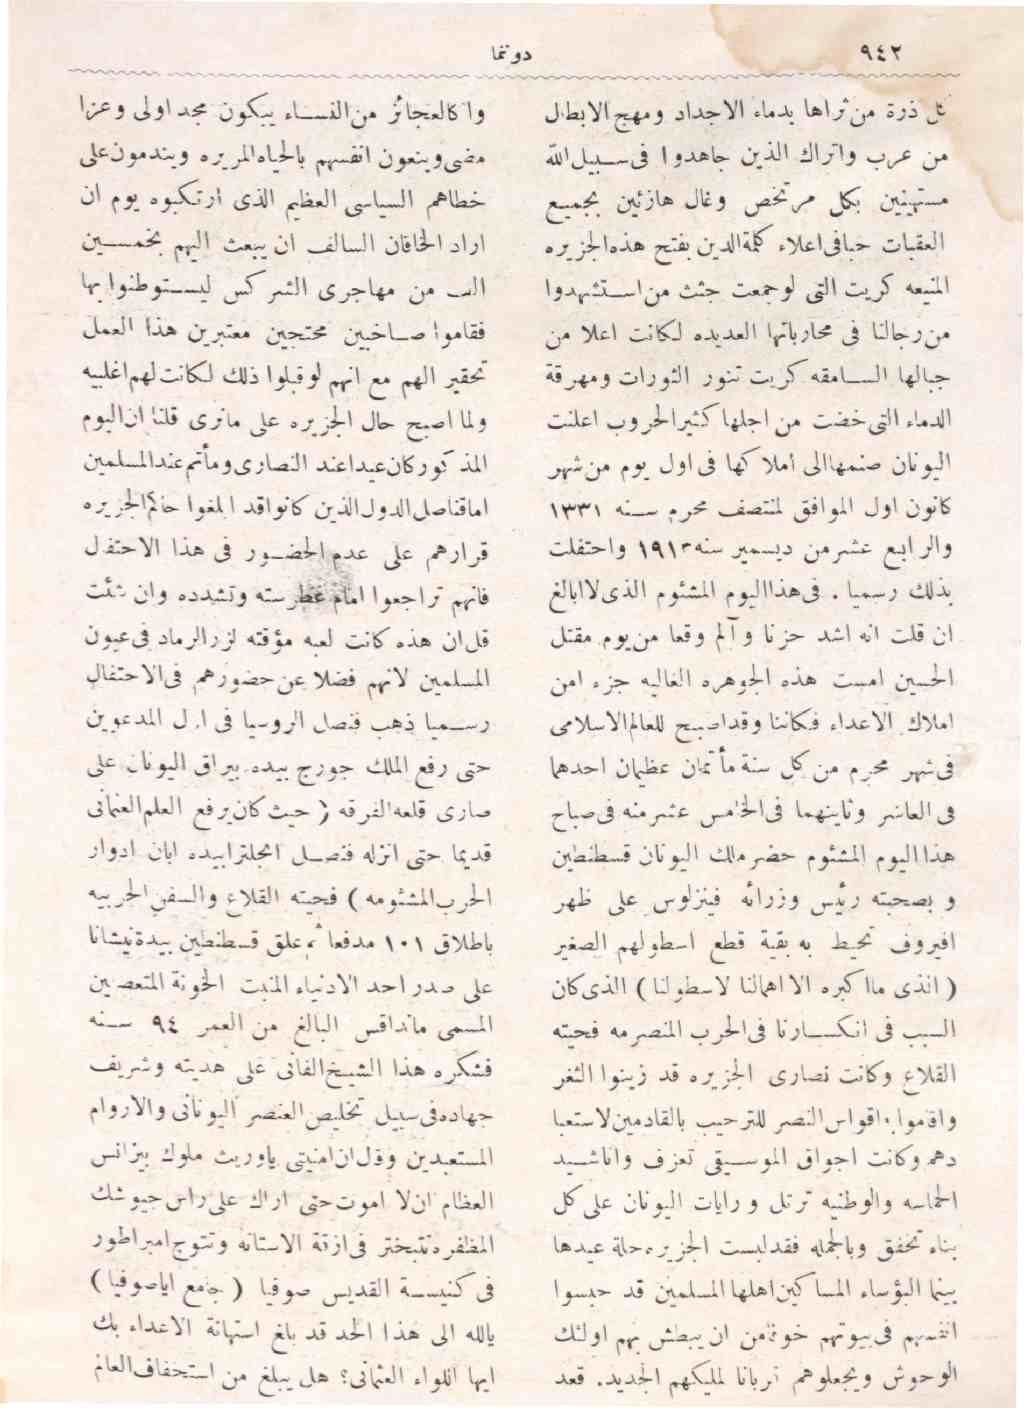 ٩٤٢
دوتنما
كل ذرة من ثراها بدماء الاجداد ومهج الابطال
من عرب واتراك الذين جاهدوا فى سبيل الله
مستهينين بكل مرتخص وغال هازئين بجميع
العقبات حبافى اعلاء كلمة الدين بفتح هذه الجزيره
المنيعه كريت التى لو جمعت جثث من استشهدوا
من رجالنا فى محارباتها العديده لكانت اعلا من
جبالها السامقه كريت تنور الثورات ومهرقة
الدماء التى خضت من اجلها كثير الحروب اعلنت
اليونان ضمها الى املاكها فى اول يوم من شهر
كانون اول الموافق لمنتصف محرم سنه ١٣٣١
والرابع عشر من ديسمبر سنه ١٩١٣ واحتفلت
بذلك رسميا . فى هذا اليوم المشئوم الذى لا ابالغ
ان قلت انه اشد حزنا وآلم وقعا من يوم مقتل
الحسين امست هذه الجوهره الغاليه جزء امن
املاك الاعداء فكاننا وقد اصبح للعالم الاسلامى
فى شهر محرم من كل سنة مأتمان عظيمان احدهما
فى العاشر وثانيهما فى الخامس عشر منه فى صباح
هذا اليوم المشئوم حضر مالك اليونان قسطنطين
و بصحبته رئيس وزرائه فينزلوس على ظهر
افيروف تحيط به بقية قطع اسطولهم الصغير
( الذى ما اكبره الا اهمالنا لاسطولنا ) الذى كان
السبب فى انكسارنا فى الحرب المنصرمه فحيته
القلاع وكانت نصارى الجزيره قد زينوا الثغر
واقاموا اقواس النصر للترحيب بالقادمين لاستعبا
دهم وكانت اجواق الموسيقى تعزف واناشيد
الحماسه والوطنيه ترتل و رايات اليونان على كل
بناء تخفق وبالجمله فقد لبست الجزيره حلة عيدها
بينما البؤساء المساكين اهلها المسلمين قد حبسوا
انفسهم فى بيوتهم خوفا من ان يبطش بهم اولئك
الوحوش ويجعلوهم قربانا لمليكهم الجديد. فعد
وا كالعجائز من النساء يبكون مجد اولى وعزا
مضى وينعون انفسهم بالحياه المريره ويندمون على
خطاهم السياسى العظيم الذى ارتكبوه يوم ان
اراد الخاقان السالف ان يبعث اليهم بخمسين
الف من مهاجرى الشركس ليستوطنوا بها
فقاموا صاخبين محتجين معتبرين هذا العمل
تحقير الهم مع انهم لو قبلوا ذلك لكانت لهم اغلبيه
ولما اصبح حال الجزيره على مانرى قلنا ان اليوم
المذكور كان عيدا عند النصارى ومأتم عند المسلمين
اما قناصل الدول الذين كانوا قد ابلغوا حاكم الجزيره
قرارهم على عدم الحضور فى هذا الاحتفل
فانهم تراجعوا امام غطرسته وتشدده وان شئت
قل ان هذه كانت لعبه مؤقته لزر الرماد فى عيون
المسلمين لانهم فضلا عن حضورهم فى الاحتفال
رسميا ذهب قنصل الروسيا فى اول المدعوين
حتى رفع الملك جورج بيده بيراق اليونان على
صارى قلعه الفرقه ( حيث كان يرفع العلم العثمانى
قديما حتى انزله قنصل انجلترا بيده ابان ادوار
الحرب المشئومه ) فحيته القلاع والسفن الحربيه
باطلاق ١٠١ مدفعا ثم علق قسطنطين بيدة نيشانا
على صدر احد الادنياء الخونة المتعصبين
المسمى مانداقس البالغ من العمر ٩٤ سنه
فشكره هذا الشيخ الفانى على هديته وشريف
جهاده فى سبيل تخليص العنصر اليونانى والاروام
المستعبدين وقال ان امنيتى ياوريث ملوك بيزانس
العظام ان لا اموت حتى اراك على راس جيوشك
المظفره تتبختر فى ازقة الاستانه وتتوج امبراطور
فى كنيسة القديس صوفيا ( جامع اياصوفيا )
يالله الى هذا الحد قد بلغ استهانة الاعداء بك
ايها اللواء العثمانى؟ هل يبلغ من استخفاف العالم